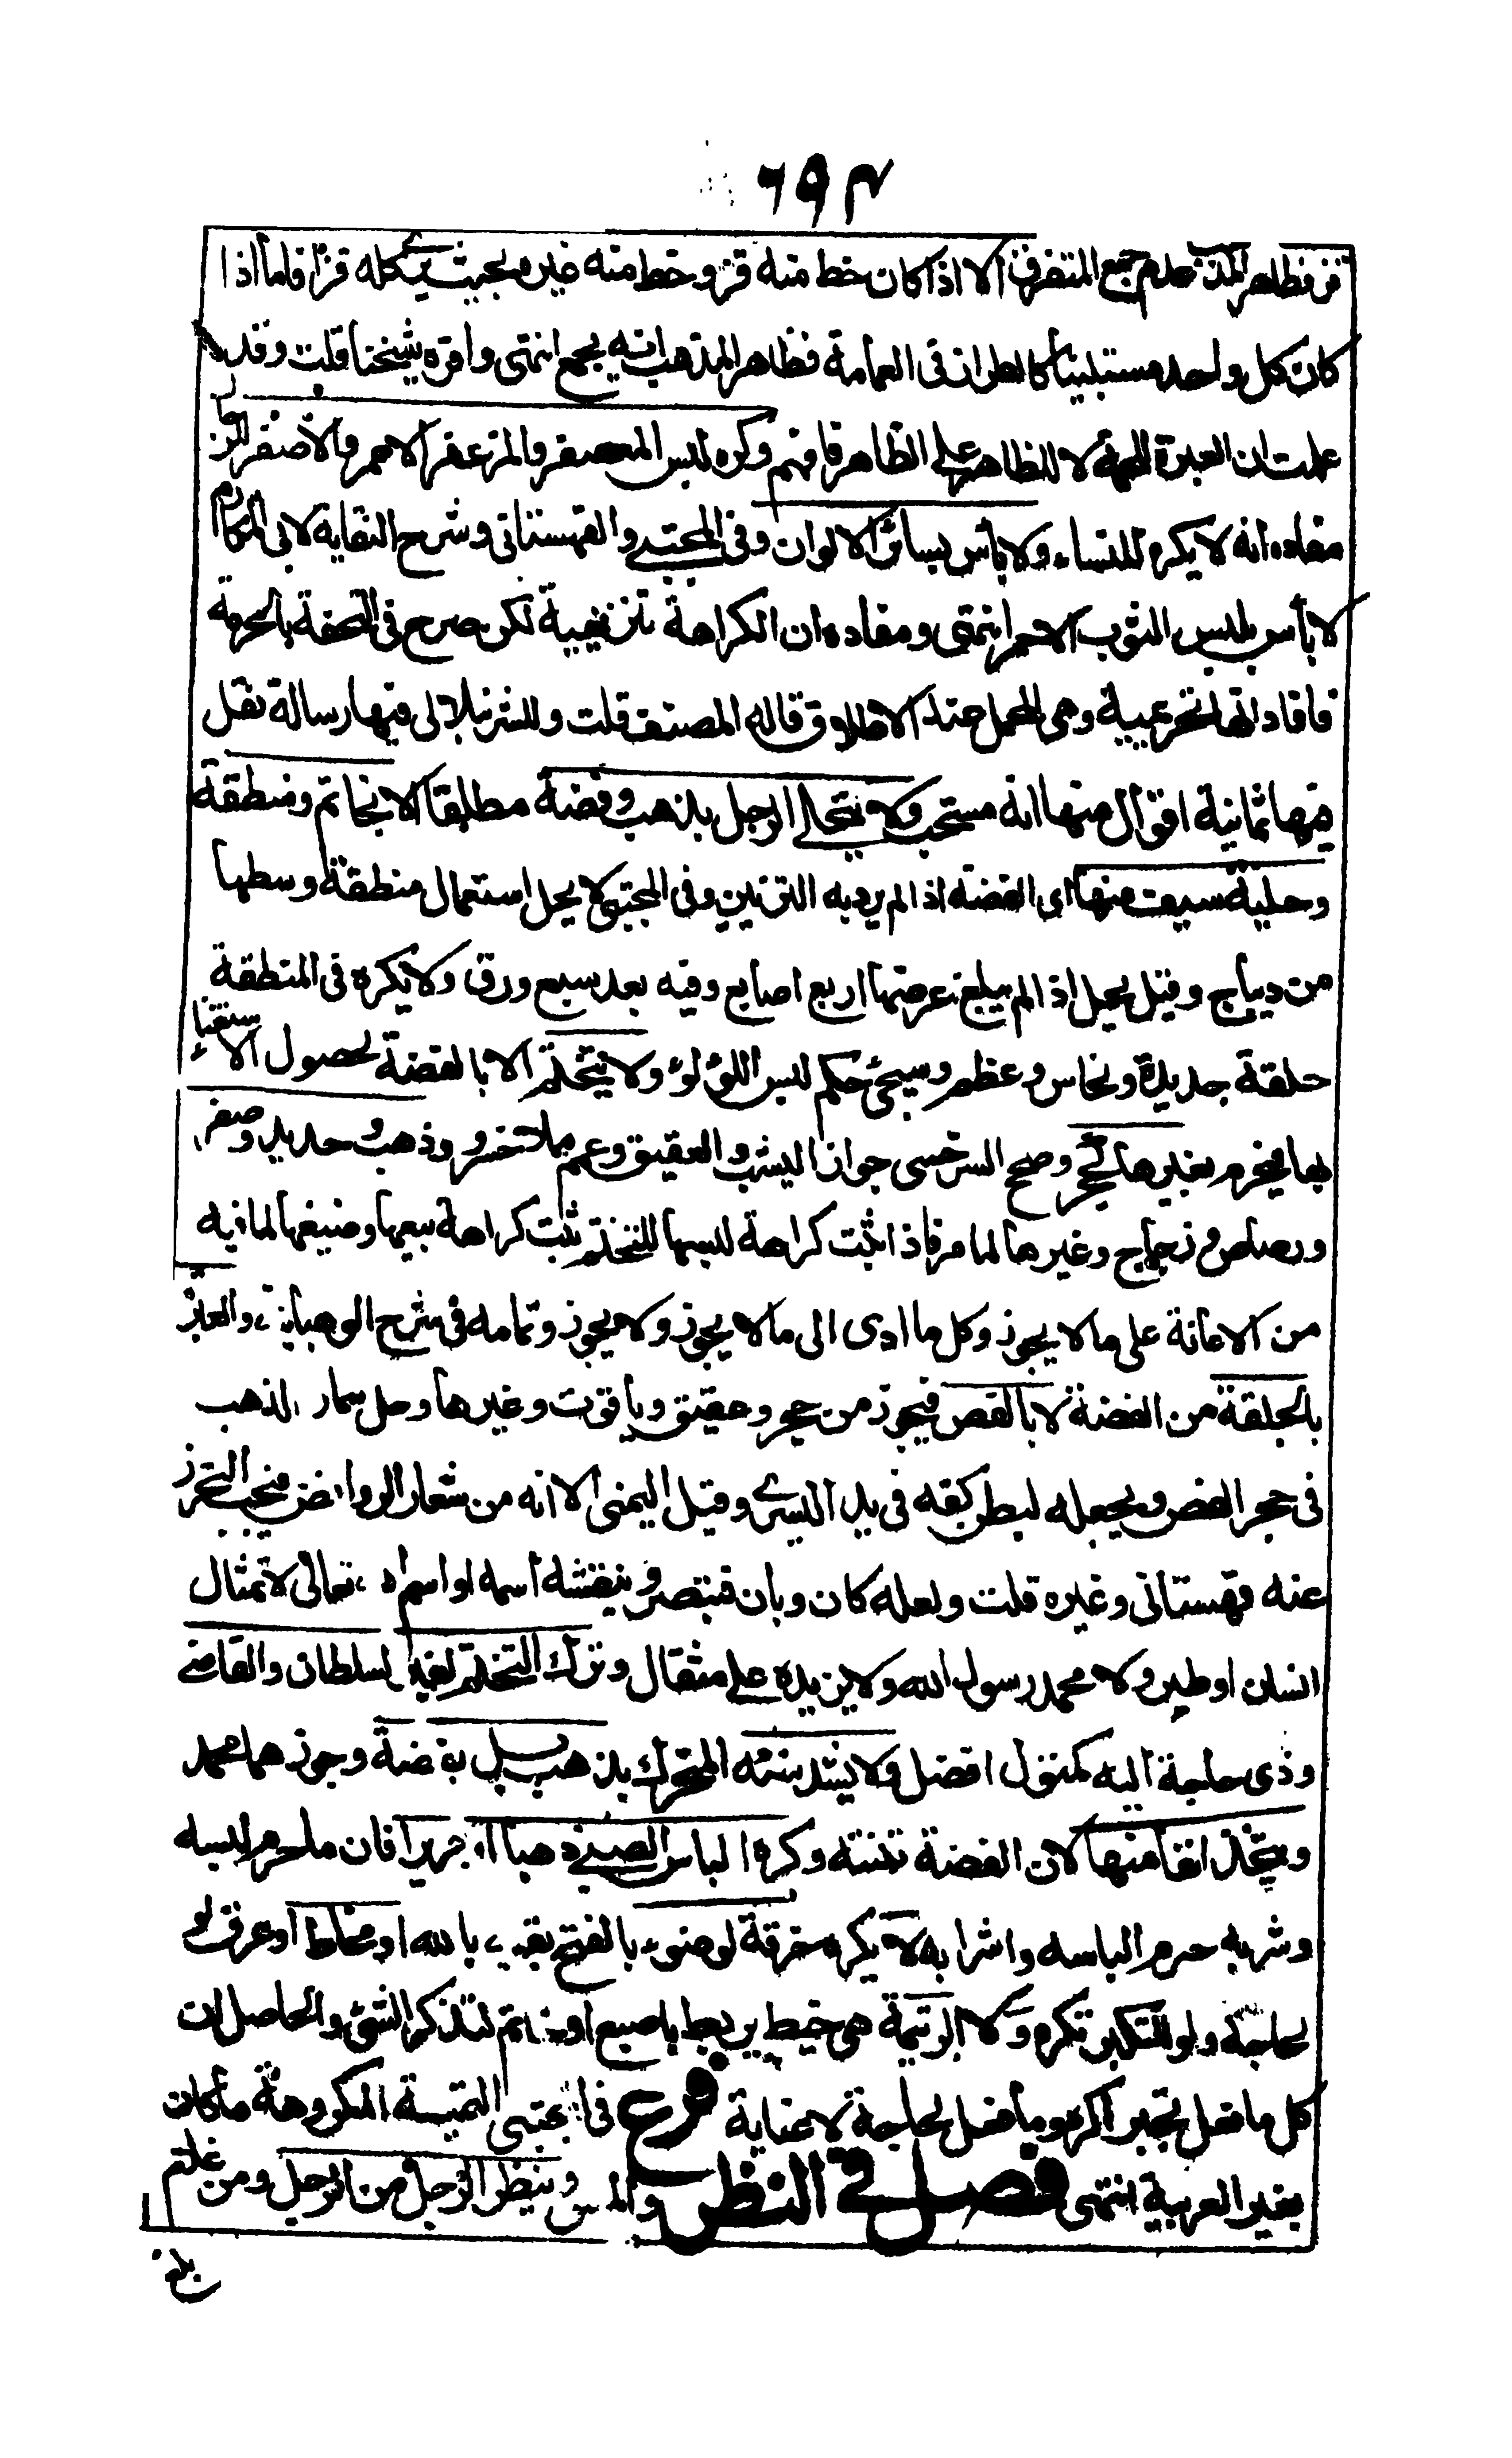 ٦٩٣
قز فظاهر المذهب عدم جمع المتفرق الا اذا كان خط منه قز وخط منه غيره بحيث يرى كله قزا فاما اذا
كان كل واحد مستبينا كالطراز في العمامة فظاهر المذهب انه يجمع انتهى واقره شيخنا قلت وقد
علمت ان العبرة للحمة لا للظاهر على الظاهر فافهم وكره لبس المعصفر والمزعفر الاحمر والاصفر للرجال
مفاده انه لا يكره للنساء ولا بأس بسائر الالوان وفي المجتبى والقهستاني وشرح النقاية لابي المكارم
لا بأس بلبس الثوب الاحمر انتهى ومفاده ان الكراهة تنزيهية لكن صرح في التحفة بالحرمة
فافاد انها تحريمية وهي المحمل عند الاطلاق قاله المصنف قلت وللشرنبلالي فيها رسالة نقل
فيها ثمانية اقوال منها انه مستحب ولا يتحلى الرجل بذهب وفضة مطلقا الا بخاتم ومنطقة
وحلية سيف منها اي الفضة اذا لم يرد به التزين وفي المجتبى لا يحل استعمال منطقة وسطها
من ديباج وقيل يحل اذا لم يبلغ عرضها اربع اصابع وفيه بعد سبع ورق ولا يكره في المنطقة
حلقة حديد ونحاس وعظم وسيجئ حكم لبس اللؤلؤ ولا يتختم الا بالفضة لحصول الاستغنا
بها فيحرم بغيرها كحجر وصحح السرخسي جواز اليشب والعقيق وعمم ملا خسرو وذهب وحديد وصفر
ورصاص وزجاج وغيرها لما مر فاذا ثبت كراهة لبسها للتختم ثبت كراهة بيعها وصيغها لما فيه
من الاعانة على ما لا يجوز وكل ما ادى الى ما لا يجوز ولا يجوز وتمامه في شرح الوهبانية والعبرة
بالحلقة من الفضة لا بالفص فيجوز من حجر وعقيق وياقوت وغيرها وحل مسمار الذهب
في حجر الفص ويجعله لبطن كفه في يد اليسرى وقيل اليمنى الا انه من شعار الروافض فيجب التحرز
عنه قهستاني وغيره قلت ولعله كان وبان فتبصر وينقشه اسمه او اسم الله تعالى لا تمثال
انسان او طير ولا محمد رسول الله ولا يزيده على مثقال وترك التختم لغير السلطان والقاضي
وذي حاجة اليه كمتول افضل ولا يشد سنه المتحرك بذهب بل بفضة وجوزهما محمد
ويتخذ انفا منها لان الفضة تنتنه وكره الباس الصبي ذهبا او حريرا فان ما حرم لبسه
وشربه حرم الباسه واشرابه لا يكره خرقة لوضوء بالفتح بقية بلله او مخاط او عرق لو
لحاجة ولو للتكبر تكره ولا الرتيمة هي خيط يربط باصبع او خاتم لتذكر الشئ والحاصل ان
كل ما فعل تجبرا كره وما فعل لحاجة لا عناية فرع في المجتبى التميمة المكروهة ما كان
بغير العربية انتهى فصل في النظر والمس وينظر الرجل من الرجل ومن غلام
بلغ